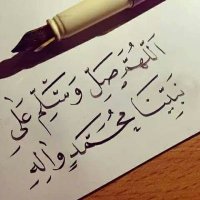 اَللّٰهُمَّ صَلِّ وَسَلِّم عَلٰی
نَبِيِّنَا مُحَمَّدٍ وَاٰلِهِ